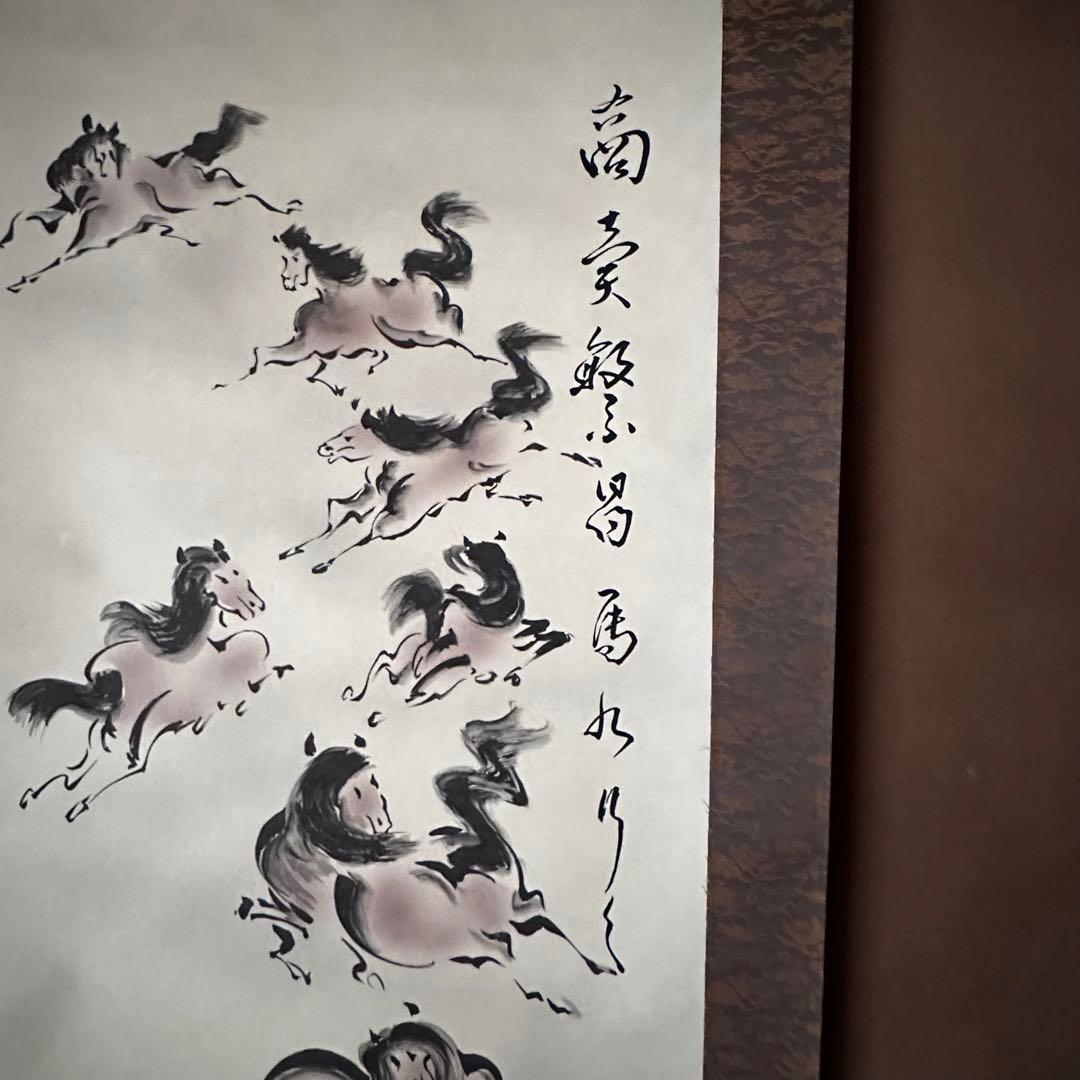 商売繁昌馬九行く